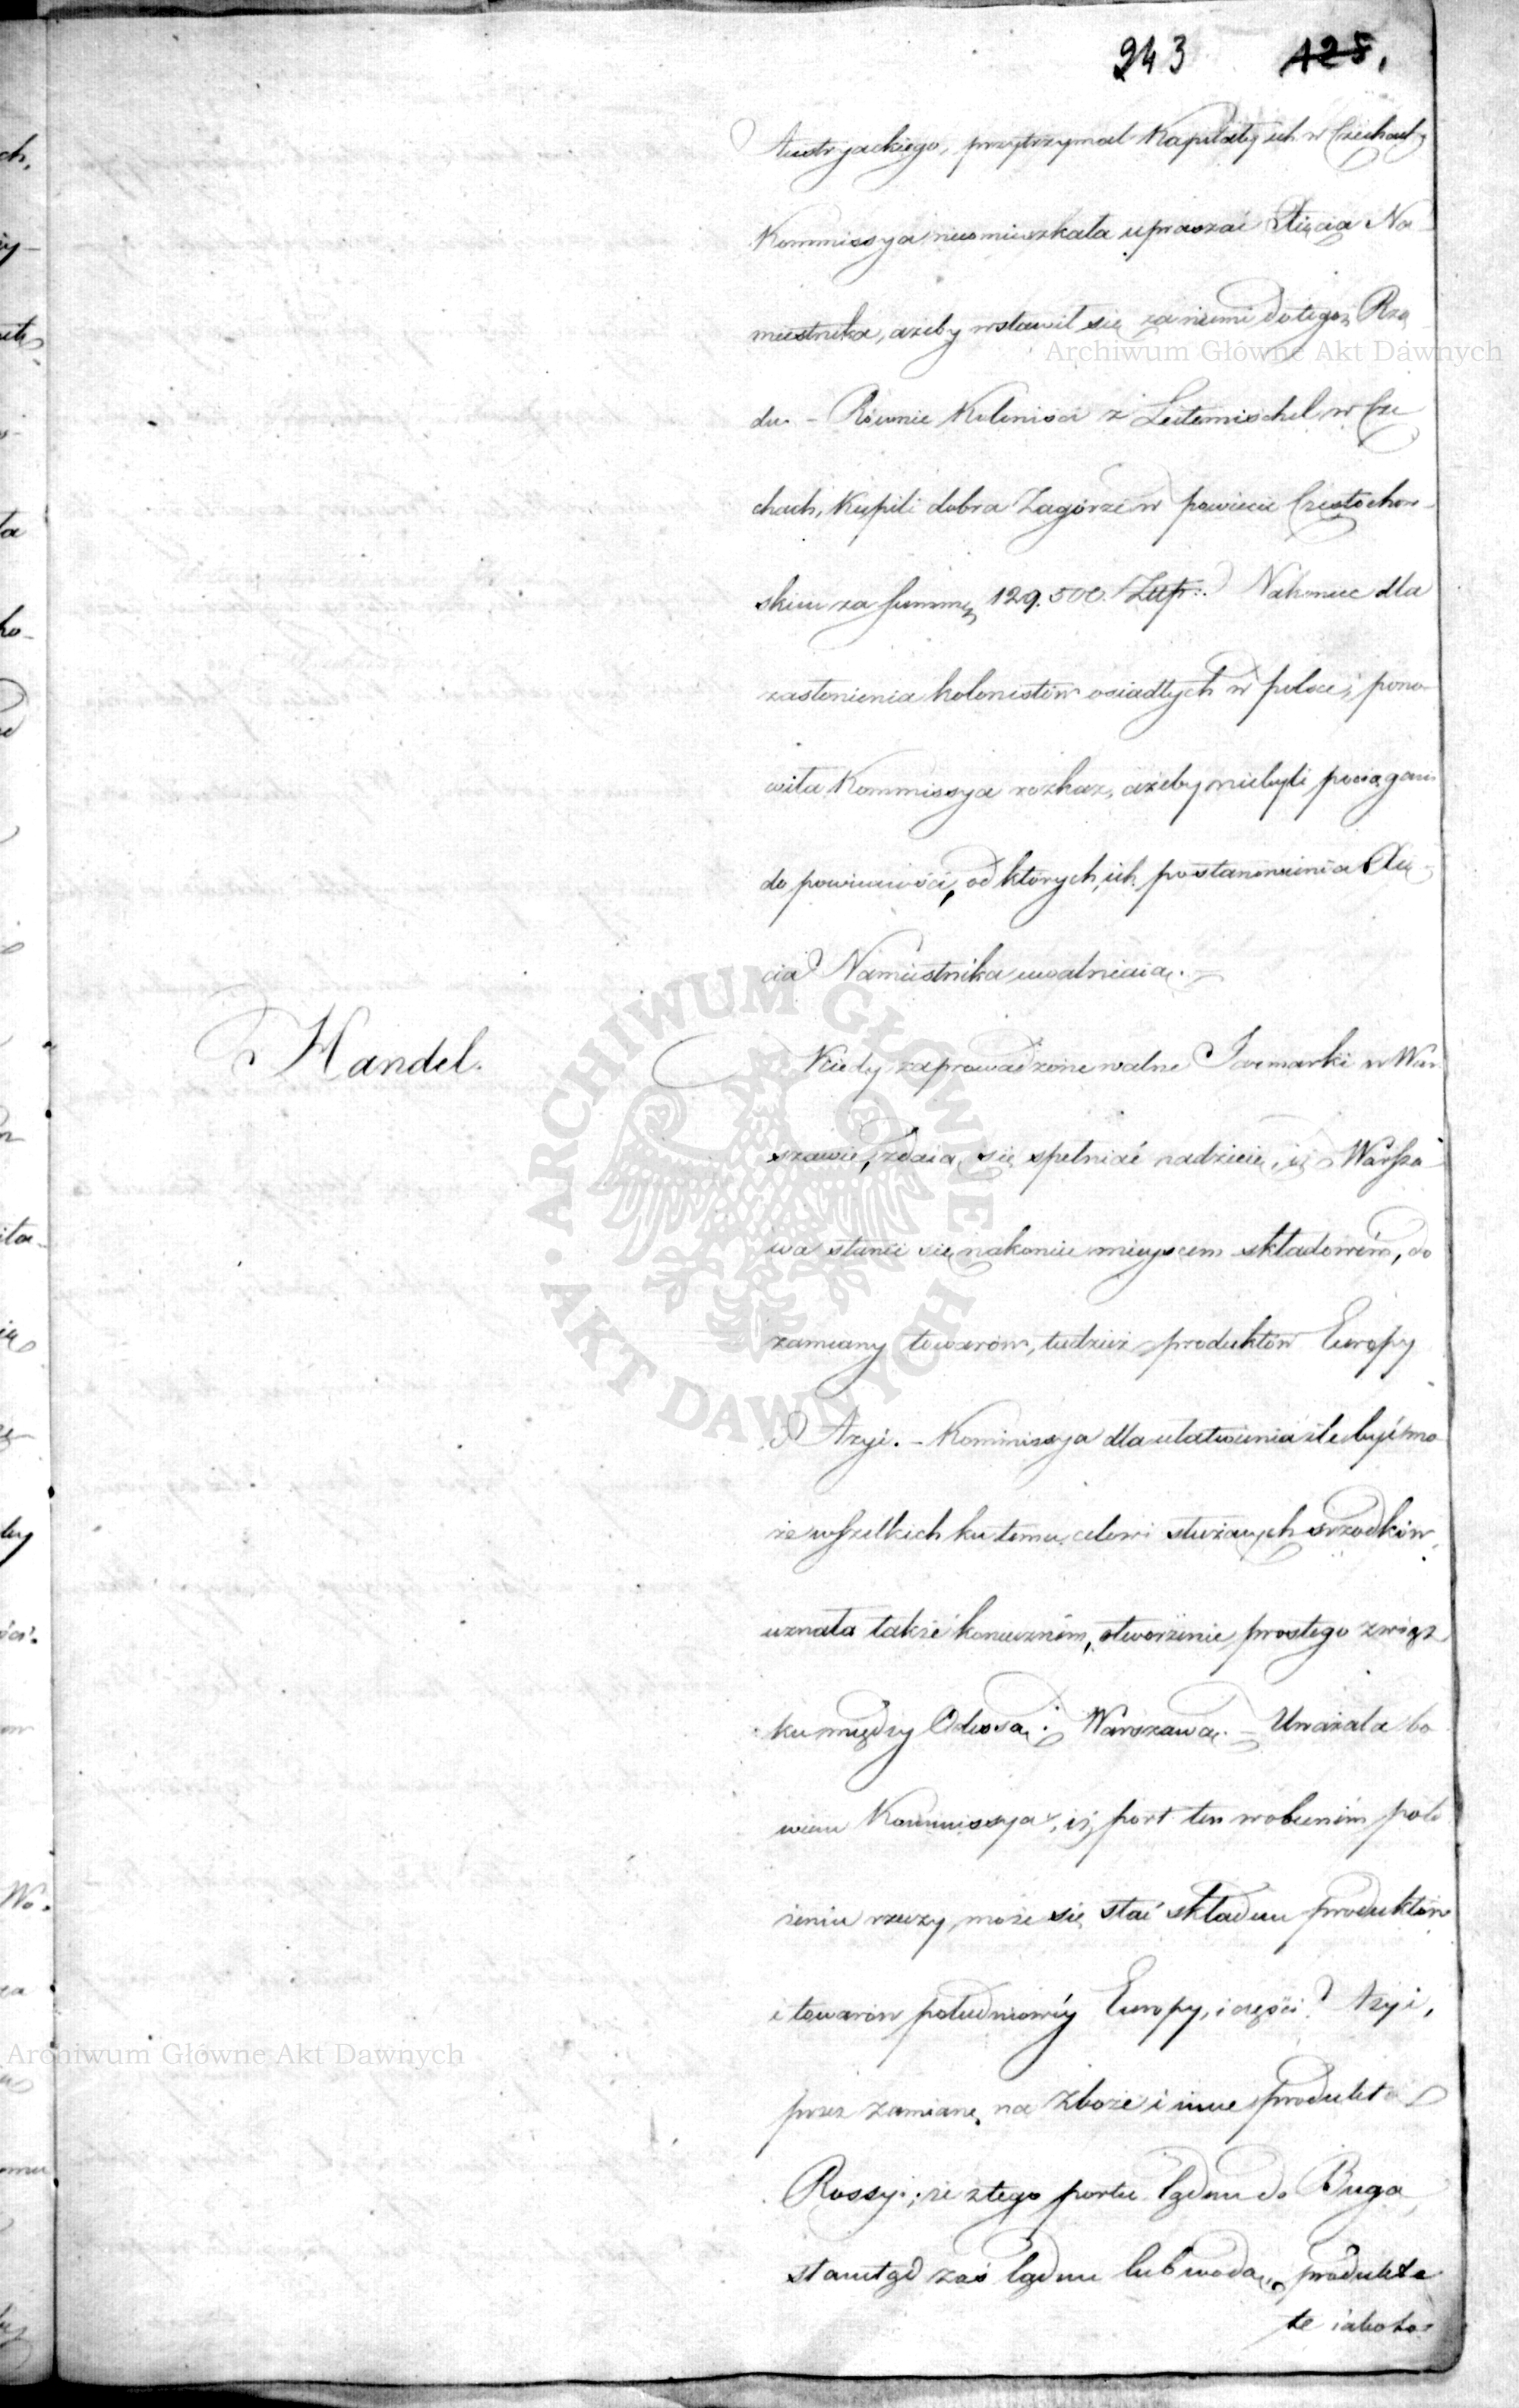 243 125.
Austryackiego, przytrzymał Kapitały ich w Czechach,
Kommissya nieomieszkała upraszać Xięcia Na-
miestnika, ażeby wstawił się za niemi do tegoż Rzą
du. - Równie Koloniści z Leitemischel w Cze
chach, Kupili dobra Zagórze w powiecie Częstochow-
skim za summę 129.500. Złłp:. Nakoniec dla
zasłonienia kolonistów osiadłych w polsce, pono-
wiła Kommissya rozkaz, ażeby niebyli pociągani
do powinności, od których, ich postanowienia Xię-
cia Namiestnika uwalniaią. -
Handel.
Kiedy zaprowadzone walne Jarmarki w War
szawie, zdaią się spełniać nadzieię, iż Warsza
wa stanie się nakoniec mieyscem składowém, do
zamiany towarów, tudzież produktów Europy
i Azyi. - Kommissya dla ułatwienia ile być mo
że wszelkich ku temu celowi służących srzodków,
uznała także konieczném, otworzenie prostego związ
ku między Odessą i Warszawą. - Uważała bo
wiem Kommissya, iż port ten w obecném poło
żeniu rzeczy, może się stać składem produktów
i towarów południowéy Europy, i części Azyi,
przez zamianę na zboże i inne produkta
Rossyi; że z tego portu lądem do Buga,
stamtąd zaś lądem lub wodą, produkta
te iakoto
Archiwum Główne Akt Dawnych
Archiwum Główne Akt Dawnych
ARCHIWUM GŁÓWNE · AKT DAWNYCH ·